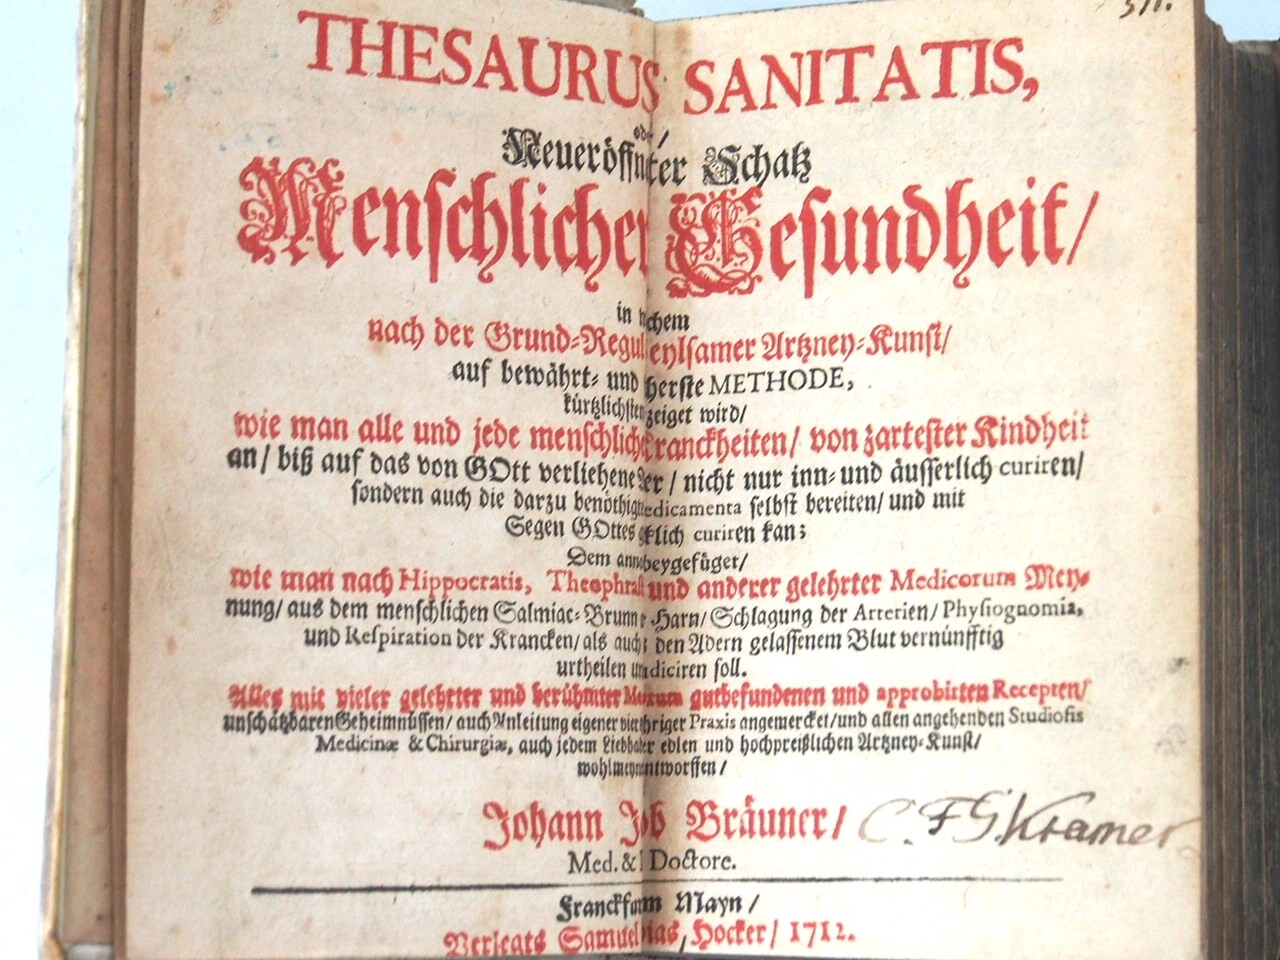 311.
THESAURUS SANITATIS,
oder/
Neueröffnter Schatz
Menschlicher Gesundheit/
in
nach der Grund-Regul heylsamer Artzney-Kunst/
auf bewährt- und METHODE,
kürtzlichst wird/
wie man alle und jede menschliche Kranckheiten/ von zartester Kindheit
an/ biß auf das von GOtt verliehene / nicht nur inn- und äusserlich curiren/
sondern auch die darzu benöthigte Medicamenta selbst bereiten/ und mit
Segen GOttes curiren kan;
Dem beygefüget/
wie man nach Hippocratis, Theophrasti und anderer gelehrter Medicorum Mey-
nung/ aus dem menschlichen Salmiac-Brunn Harn/ Schlagung der Arterien/ Physiognomia,
und Respiration der Krancken/ als auch den Adern gelassenem Blut vernünfftig
urtheilen soll.
Alles mit vieler gelehrter und berühmter gutbefundenen und approbirten Recepten/
unschätzbaren Geheimnüssen/ auch Anleitung eigener Praxis angemercket/ und allen angehenden Studiosis
Medicinæ & Chirurgiæ, auch jedem Liebhaber edlen und hochpreißlichen Artzney-Kunst/
entworffen/
Johann Job Bräuner/ C. F. G. Kramer
Med. & Doctore.
Franckfurt am Mayn/
Verlegts Samuel Hocker/ 1712.